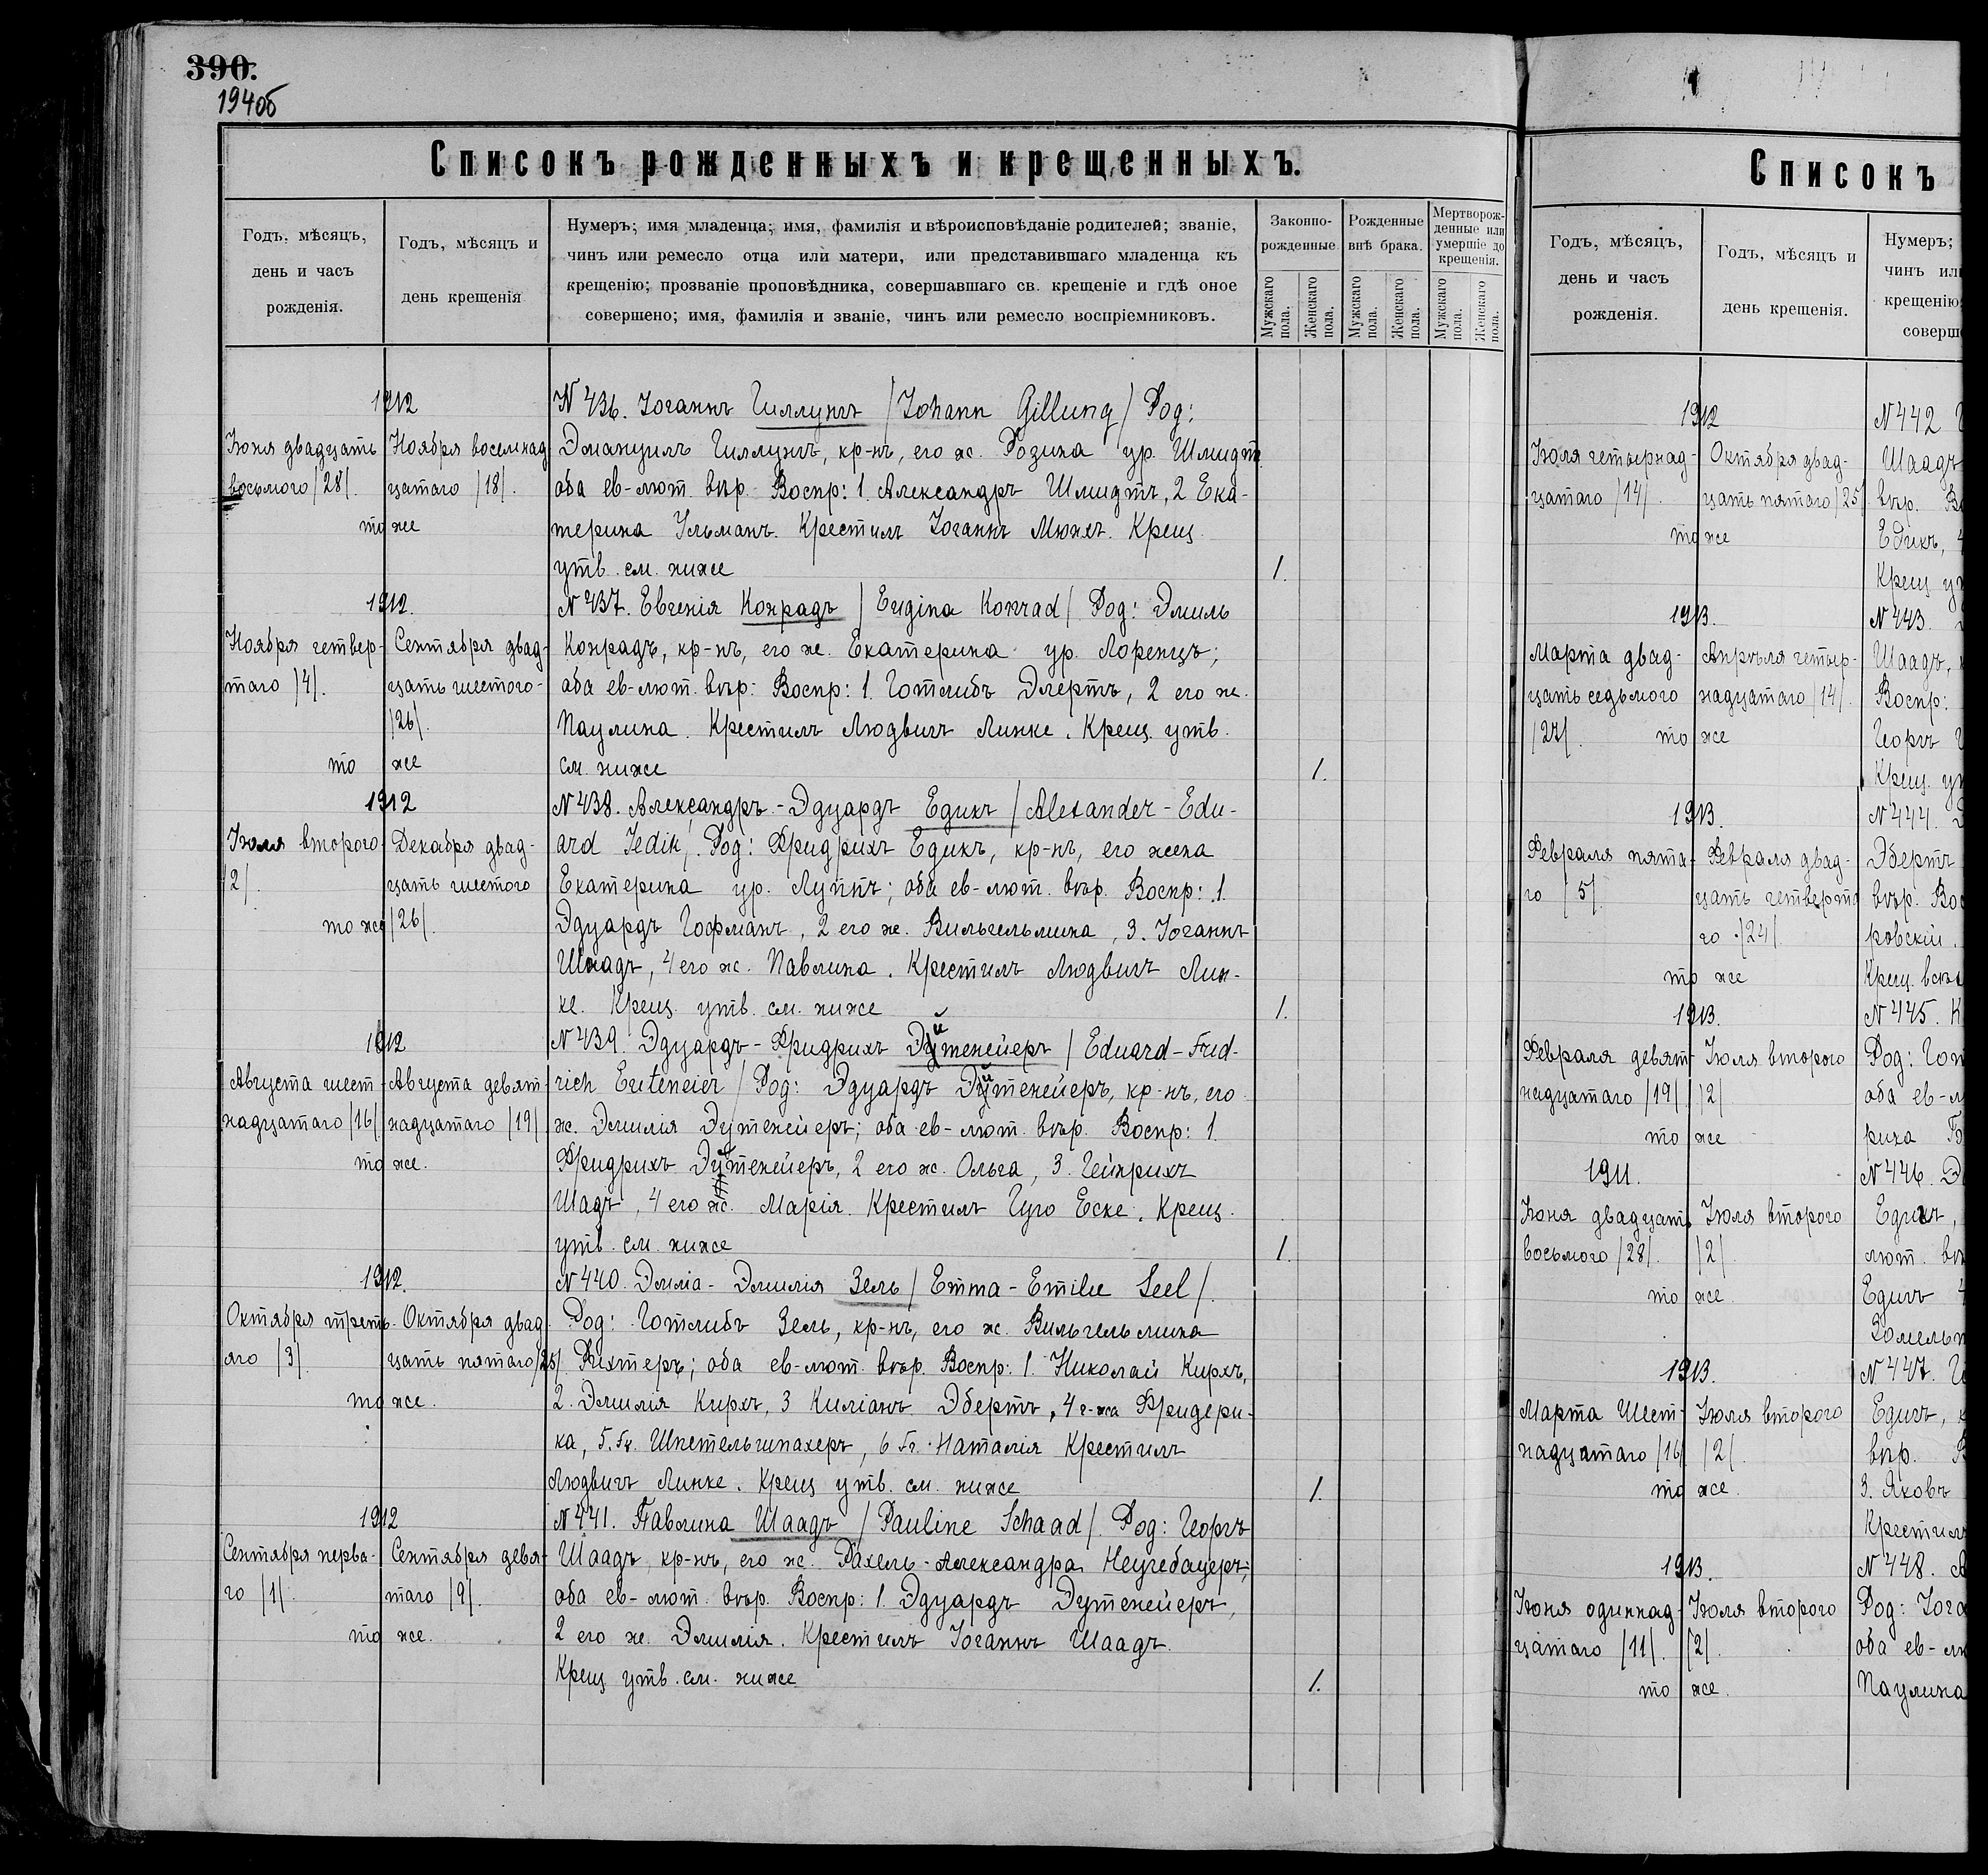 390.
194об
Списокъ рожденныхъ и крещенныхъ.
Годъ, мѣсяцъ,
день и часъ
рожденія.
Годъ, мѣсяцъ и
день крещенія
Нумеръ; имя младенца; имя, фамилія и вѣроисповѣданіе родителей; званіе,
чинъ или ремесло отца или матери, или представившаго младенца къ
крещенію; прозваніе проповѣдника, совершавшаго св. крещеніе и гдѣ оное
совершено; имя, фамилія и званіе, чинъ или ремесло воспріемниковъ.
Законно-
рожденные
Рожденные
внѣ брака.
Мертворож-
денные или
умершіе до
крещенія.
Мужскаго пола.
Женскаго пола.
Мужскаго пола.
Женскаго пола.
Мужскаго пола.
Женскаго пола.
1912
Іюня двадцать
восьмого /28/.
Ноября восемнад
цатаго /18/.
то же
N 436. Іоганнъ Гиллунгъ /Johann Gillung/ Род:
Эмануилъ Гиллунгъ, кр-нъ, его ж. Розина ур. Шмидт
оба ев-лют. вѣр. Воспр: 1. Александръ Шмидтъ, 2 Ека-
терина Ульманъ. Крестилъ Іоганнъ Мюнхъ. Крещ.
утв. см. ниже 1.
1912.
Ноября четвер-
таго /4/.
Сентября двад-
цать шестого-
/26/.
то же
N 437. Евгенія Конрадъ /Eugina Konrad/ Род: Эмиль
Конрадъ, кр-нъ, его ж. Екатерина ур. Лоренцъ;
оба ев-лют. вѣр: Воспр: 1. Готлибъ Элертъ, 2 его ж.
Паулина. Крестилъ Людвигъ Линке. Крещ. утв.
см. ниже 1.
1912
Іюля второго
/2/.
Декабря двад-
цать шестого
/26/.
то же
N 438. Александръ-Эдуардъ Едикъ /Alexander-Edu-
ard Jedik/. Род: Фридрихъ Едикъ, кр-нъ, его жена
Екатерина ур. Луппъ; оба ев-лют. вѣр. Воспр: 1.
Эдуардъ Гофманъ, 2 его ж. Вильгельмина, 3. Іоганнъ
Шаадъ, 4 его ж. Павлина. Крестилъ Людвигъ Лин-
ке. Крещ. утв. см. ниже 1.
1912
Августа шест-
надцатаго /16/
Августа девят-
надцатаго /19/
то же.
N 439. Эдуардъ-Фридрихъ Эйтенейеръ /Eduard-Fried-
rich Euteneier/ Род: Эдуардъ Эйтенейеръ, кр-нъ, его
ж. Эмилія Эутенейеръ; оба ев-лют. вѣр. Воспр: 1.
Фридрихъ Эйтенейеръ, 2 его ж. Ольга, 3. Гейнрихъ
Шадъ, 4 его ж. Марія. Крестилъ Гуго Еске. Крещ.
утв. см. ниже 1.
1912.
Октября треть-
яго /3/.
Октября двад-
цать пятаго /25/
то же.
N 440. Эмма-Эмилія Зель /Emma-Emilie Seel/.
Род: Готлибъ Зель, кр-нъ, его ж. Вильгельмина
Рихтеръ; оба ев-лют. вѣр. Воспр: 1. Николай Кирхъ,
2. Эмилія Кирхъ, 3 Киліанъ Эбертъ, 4 г-жа Фридери-
ка, 5. Fr. Шпетельшпахеръ, 6 Fr. Наталія Крестилъ
Людвигъ Линке. Крещ утв. см. ниже 1.
1912
Сентября перва-
го /1/.
Сентября девя-
таго /9/.
то же.
N 441. Павлина Шаадъ /Pauline Schaad/. Род: Георгъ
Шаадъ, кр-нъ, его ж. Рахель-Александра Неугебауеръ;
оба ев-лют. вѣр. Воспр: 1. Эдуардъ Эутенейеръ,
2 его ж. Эмилія. Крестилъ Іоганнъ Шаадъ.
Крещ утв. см. ниже 1.
Списокъ
Годъ, мѣсяцъ,
день и часъ
рожденія.
Годъ, мѣсяцъ и
день крещенія.
Нумеръ;
чинъ ил
крещенію
соверш
1912
Іюля четырнад-
цатаго /14/.
Октября двад-
цать пятаго /25/
то же
N 442
Шаадъ
вѣр. В
Едикъ, 4
Крещ ут
1913.
Марта двад-
цать седьмого
/27/.
Апрѣля четыр-
надцатаго /14/.
то же
N 443.
Шаадъ,
Воспр:
Георгъ
Крещ. ут
1913.
Февраля пята-
го /5/.
Февраля двад-
цать четверта
го /24/.
то же
N 444.
Эбертъ
вѣр. Вос
ровскій.
Крещ.
1913.
Февраля девят-
надцатаго /19/.
Іюля второго
/2/
то же
N 445. К
Род: Гот
оба ев-л
рина
1911.
Іюня двадцать
восьмого /28/.
Іюля второго
/2/.
то же.
N 446. Э
Едикъ,
лют. вѣ
Едигъ 4
1913.
Марта Шест-
надцатаго /16/
Іюля второго
/2/.
то же.
N 447.
Едигъ, к
вѣр. В
3. Яковъ
Крестилъ
1913.
Іюня одиннад-
цатаго /11/.
Іюля второго
/2/.
то же.
N 448.
Род: Іога
оба ев-лю
Паулина